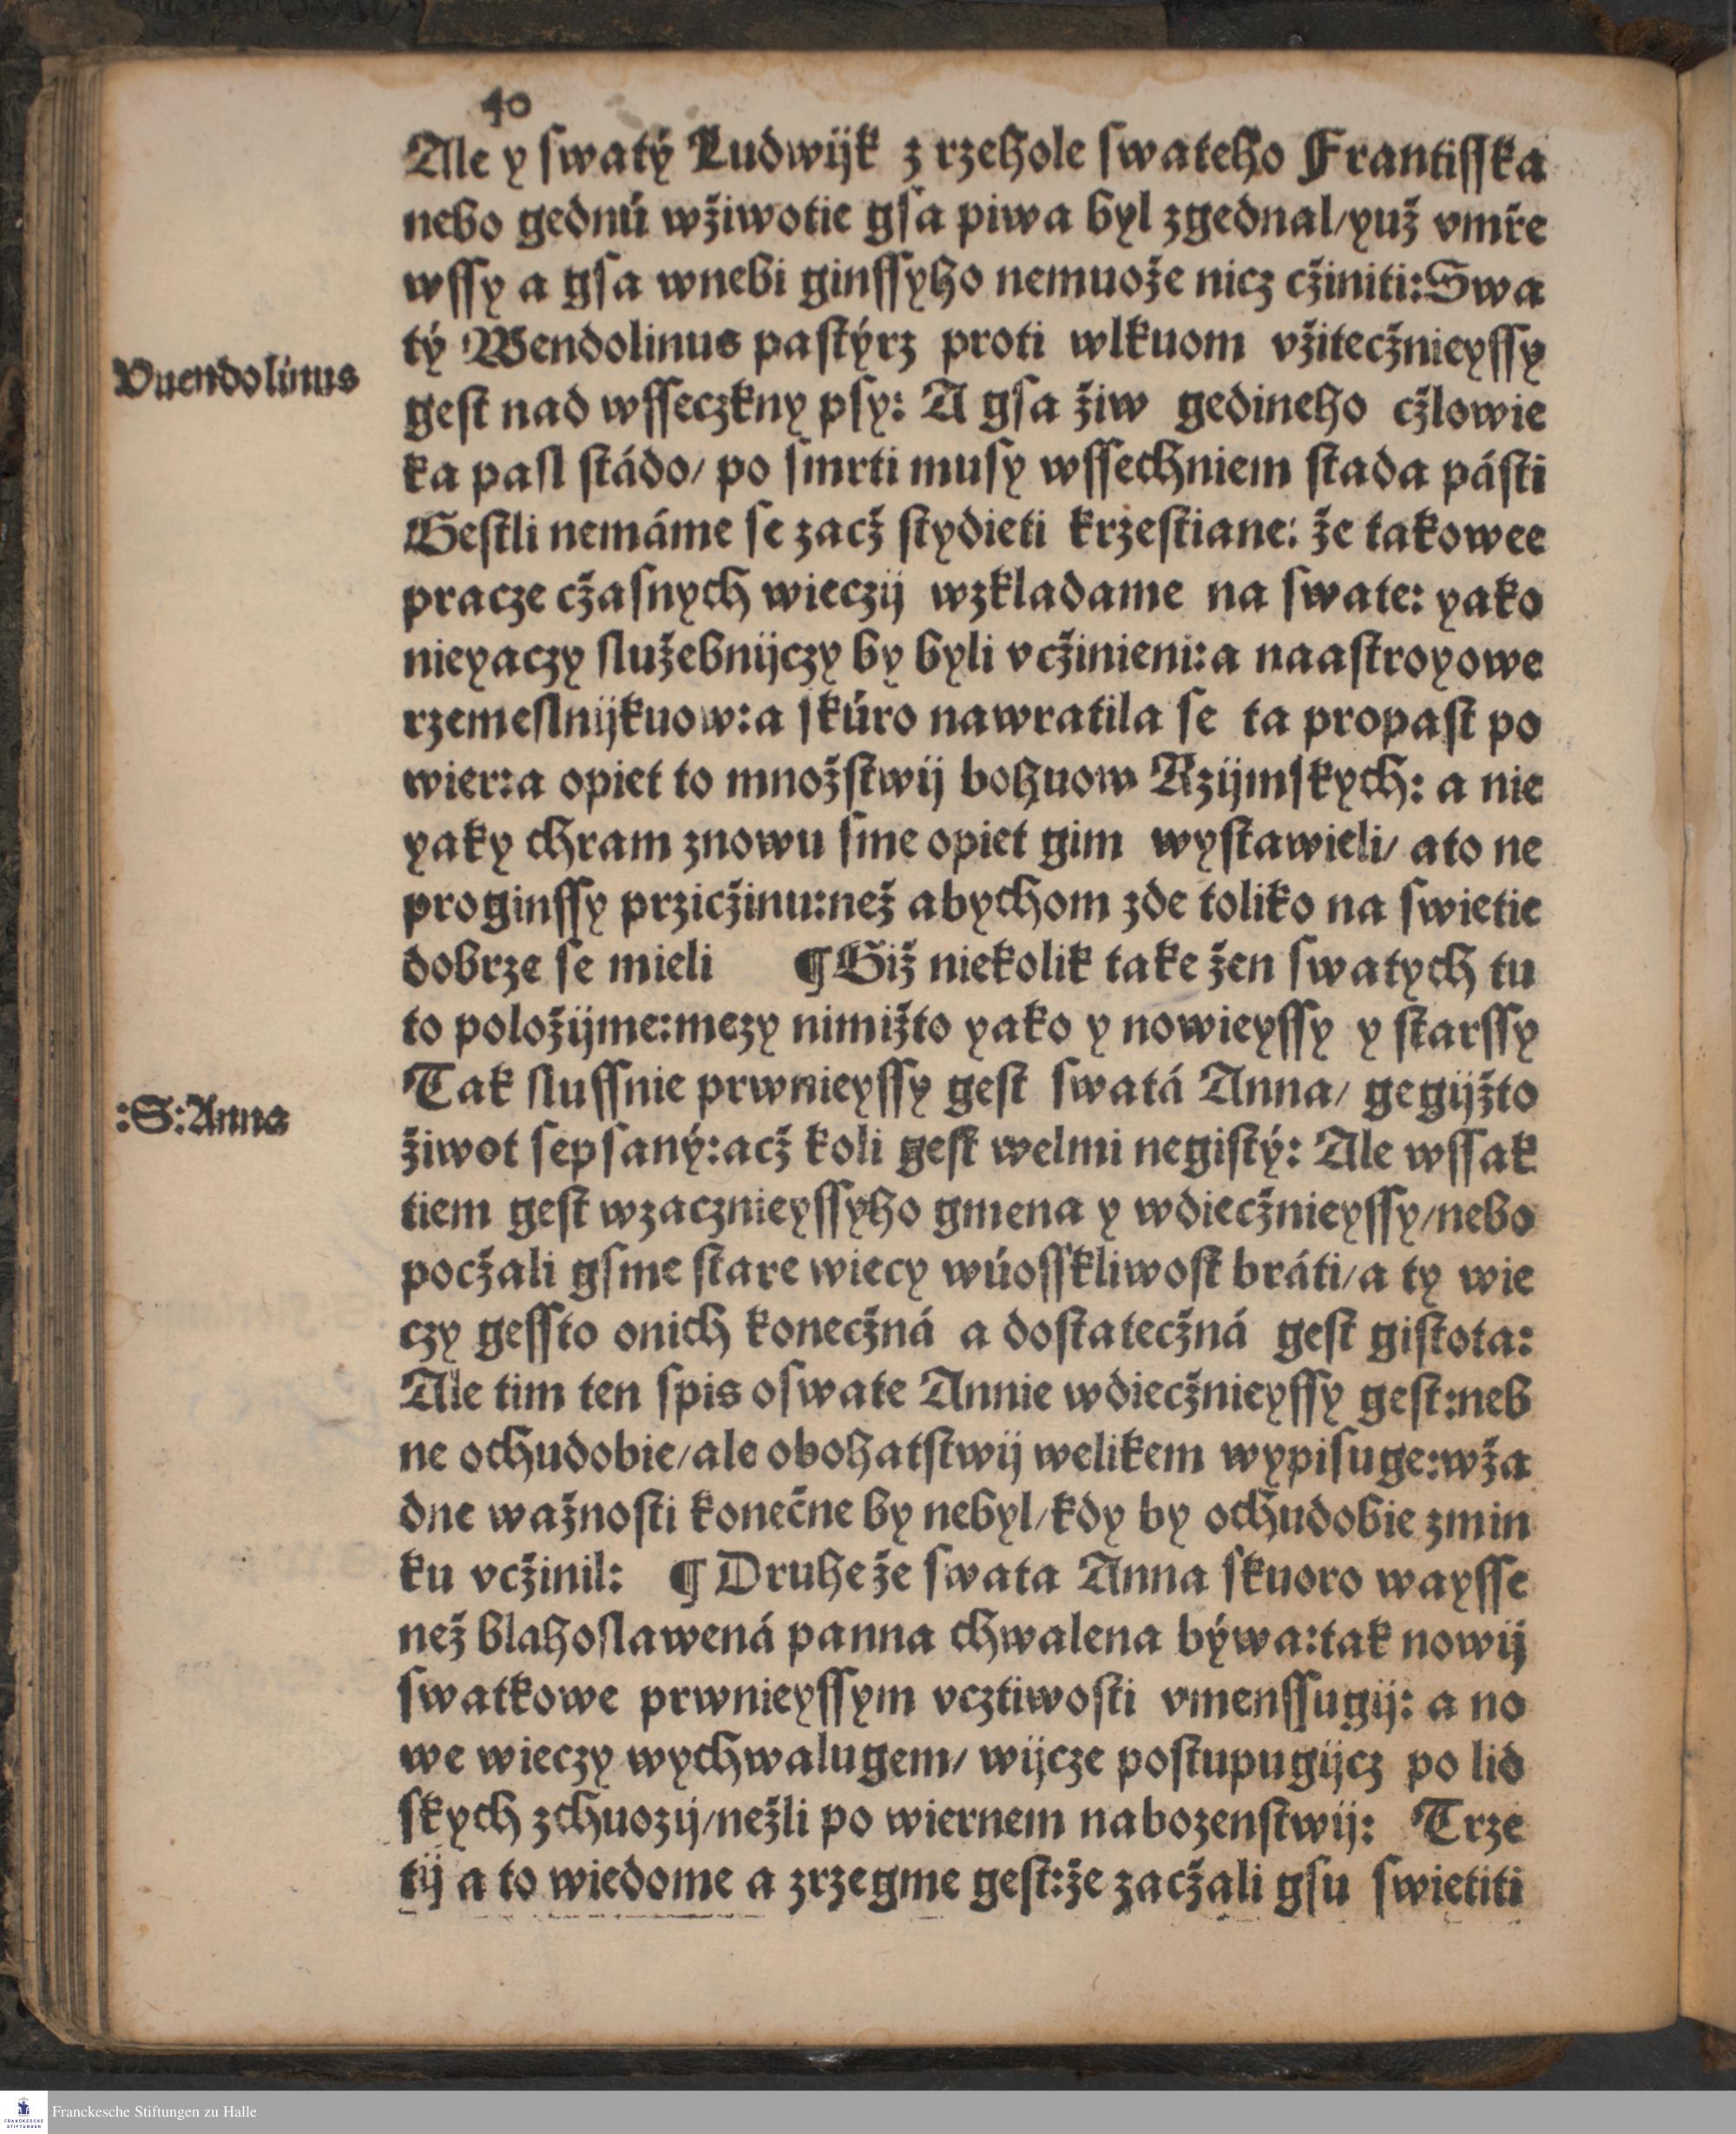 40
Ale y ſwatý Ludwijk z rzehole ſwateho Frantiſſka
nebo gednú wžiwotie gſa piwa byl zgednal/yuž vmře
wſſy a gſa wnebi ginſſyho nemuože nicz cžiniti:Swa
tý Wendolinus paſtýrz proti wlkuom vžitecžnieyſſy
Vuendolinus
geſt nad wſſeczkny pſy: A gſa žiw gedineho cžlowie
ka paſl ſtádo/ po ſmrti muſy wſſechniem ſtada páſti
Geſtli nemáme ſe zacž ſtydieti krzeſtiane: že takowee
pracze cžaſnych wieczij wzkladame na ſwate: yako
nieyaczy ſlužebnijczy by byli vcžinieni:a naaſtroyowe
rzemeſlnijkuow:a ſkúro nawratila ſe ta propaſt po
wier:a opiet to množſtwij bohuow Rzijmſkych: a nie
yaky chram znowu ſme opiet gim wyſtawieli/ ato ne
proginſſy przicžinu:než abychom zde toliko na ſwietie
dobrze ſe mieli ¶Giž niekolik take žen ſwatych tu
to položijme:mezy nimižto yako y nowieyſſy y ſtarſſy
Tak ſluſſnie prwnieyſſy geſt ſwatá Anna/ gegijžto
:S:Anna
život ſepſaný:acž koli geſt welmi negiſtý: Ale wſſak
tiem geſt wzacznieyſſyho gmena y wdiecžnieyſſy/nebo
pocžali gſme ſtare wiecy wúoſſkliwoſt bráti/a ty wie
czy geſſto onich konecžná a doſtatecžná geſt giſtota:
Ale tim ten ſpis oſwate Annie wdiecžnieyſſy geſt:neb
ne ochudobie/ale obohatſtwij welikem wypiſuge:wža
dne wažnoſti konečne by nebyl/kdy by ochudobie zmin
ku vcžinil: ¶Druhe že ſwata Anna ſkuoro wayſſe
než blahoſlawená panna chwalena býwa:tak nowij
ſwatkowe prwnieyſſym vcztiwoſti vmenſſugij: a no
we wieczy wychwalugem/ wijcze poſtupugijcz po lid
ſkych zchuozij/nežli po wiernem nabozenſtwij: Trze
tij a to wiedome a zrzegme geſt:že zacžali gſu ſwietiti
Franckesche Stiftungen zu Halle